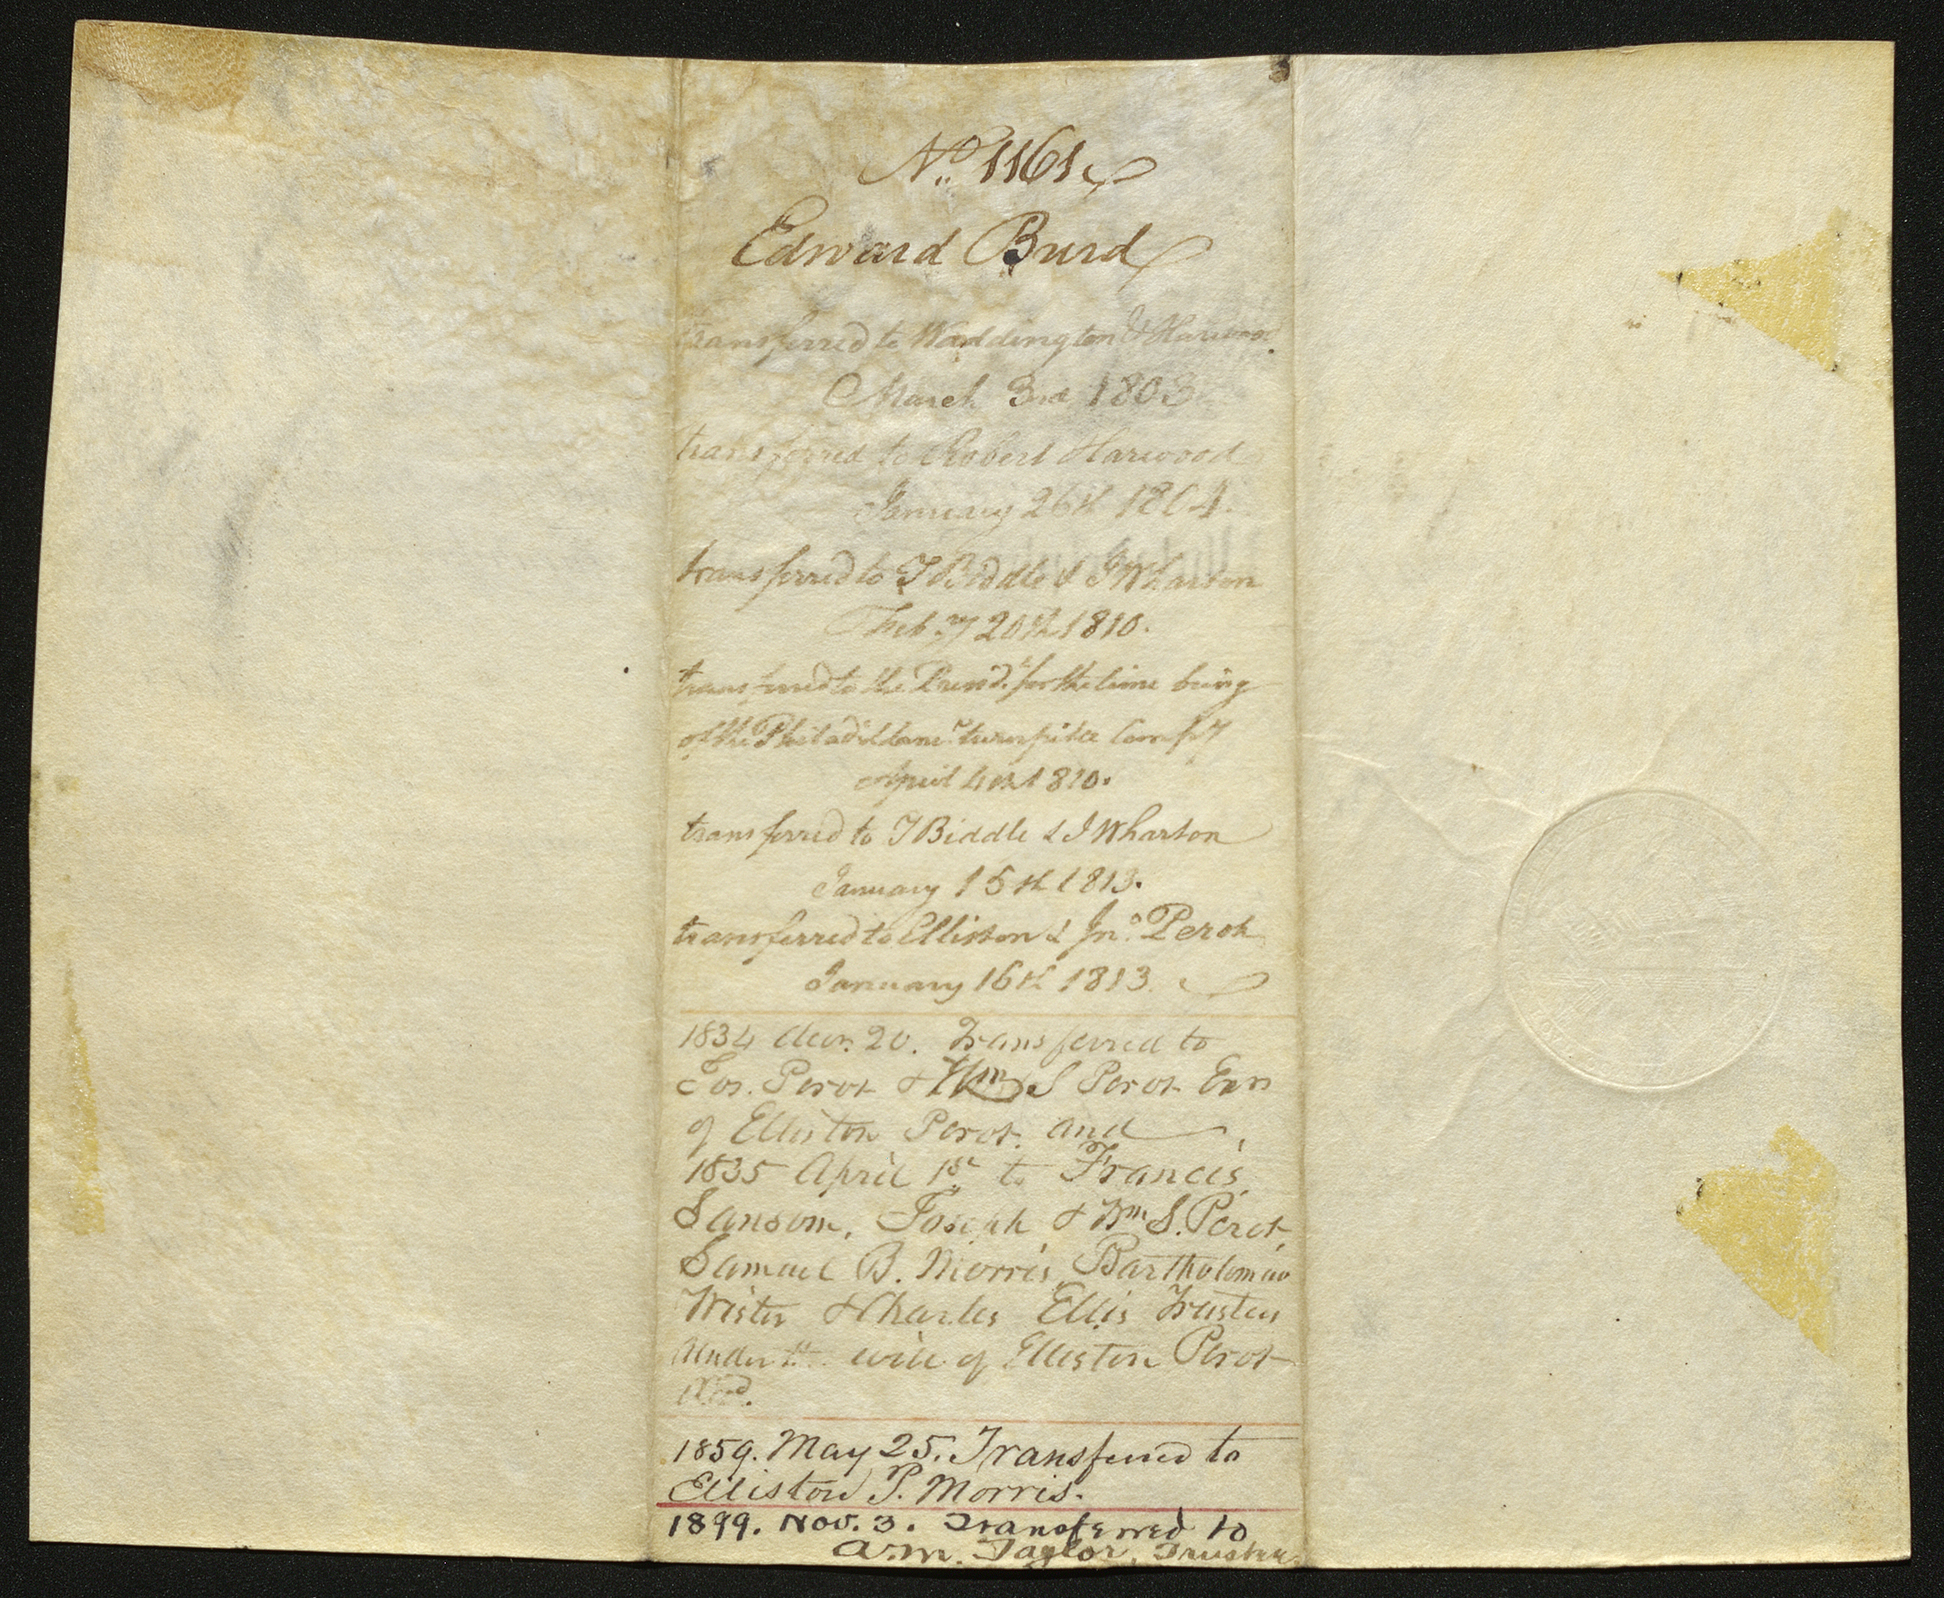 No. 1161
Edward Burd
transferred to Waddington & Harwood
March 3rd 1803
transferred to Robert Harwood
January 26th 1804.
transferred to T Biddle & J Wharton
Feb.ry 20th 1810.
transferred to the Presdt. for the time being
of the Philad. & Lancr. turnpike Compy
April 4th 1810.
transferred to T Biddle & J Wharton
January 15th 1813.
transferred to Elliston & Jno. Perot
January 16th 1813.
1834 20. Transferred to
Jos. Perot & Wm S Perot Exrs
of Elliston Perot. and
1835 April 1st to Francis
Sansom, Joseph & Wm S. Perot,
Samuel B. Morris, Bartholomew
Wister & Charles Ellis Trustees
under the will of Elliston Perot
decd.
1859. May 25. Transferred to
Elliston P. Morris.
1899. Nov. 3. Transferred to
A.M. Taylor, Trustee